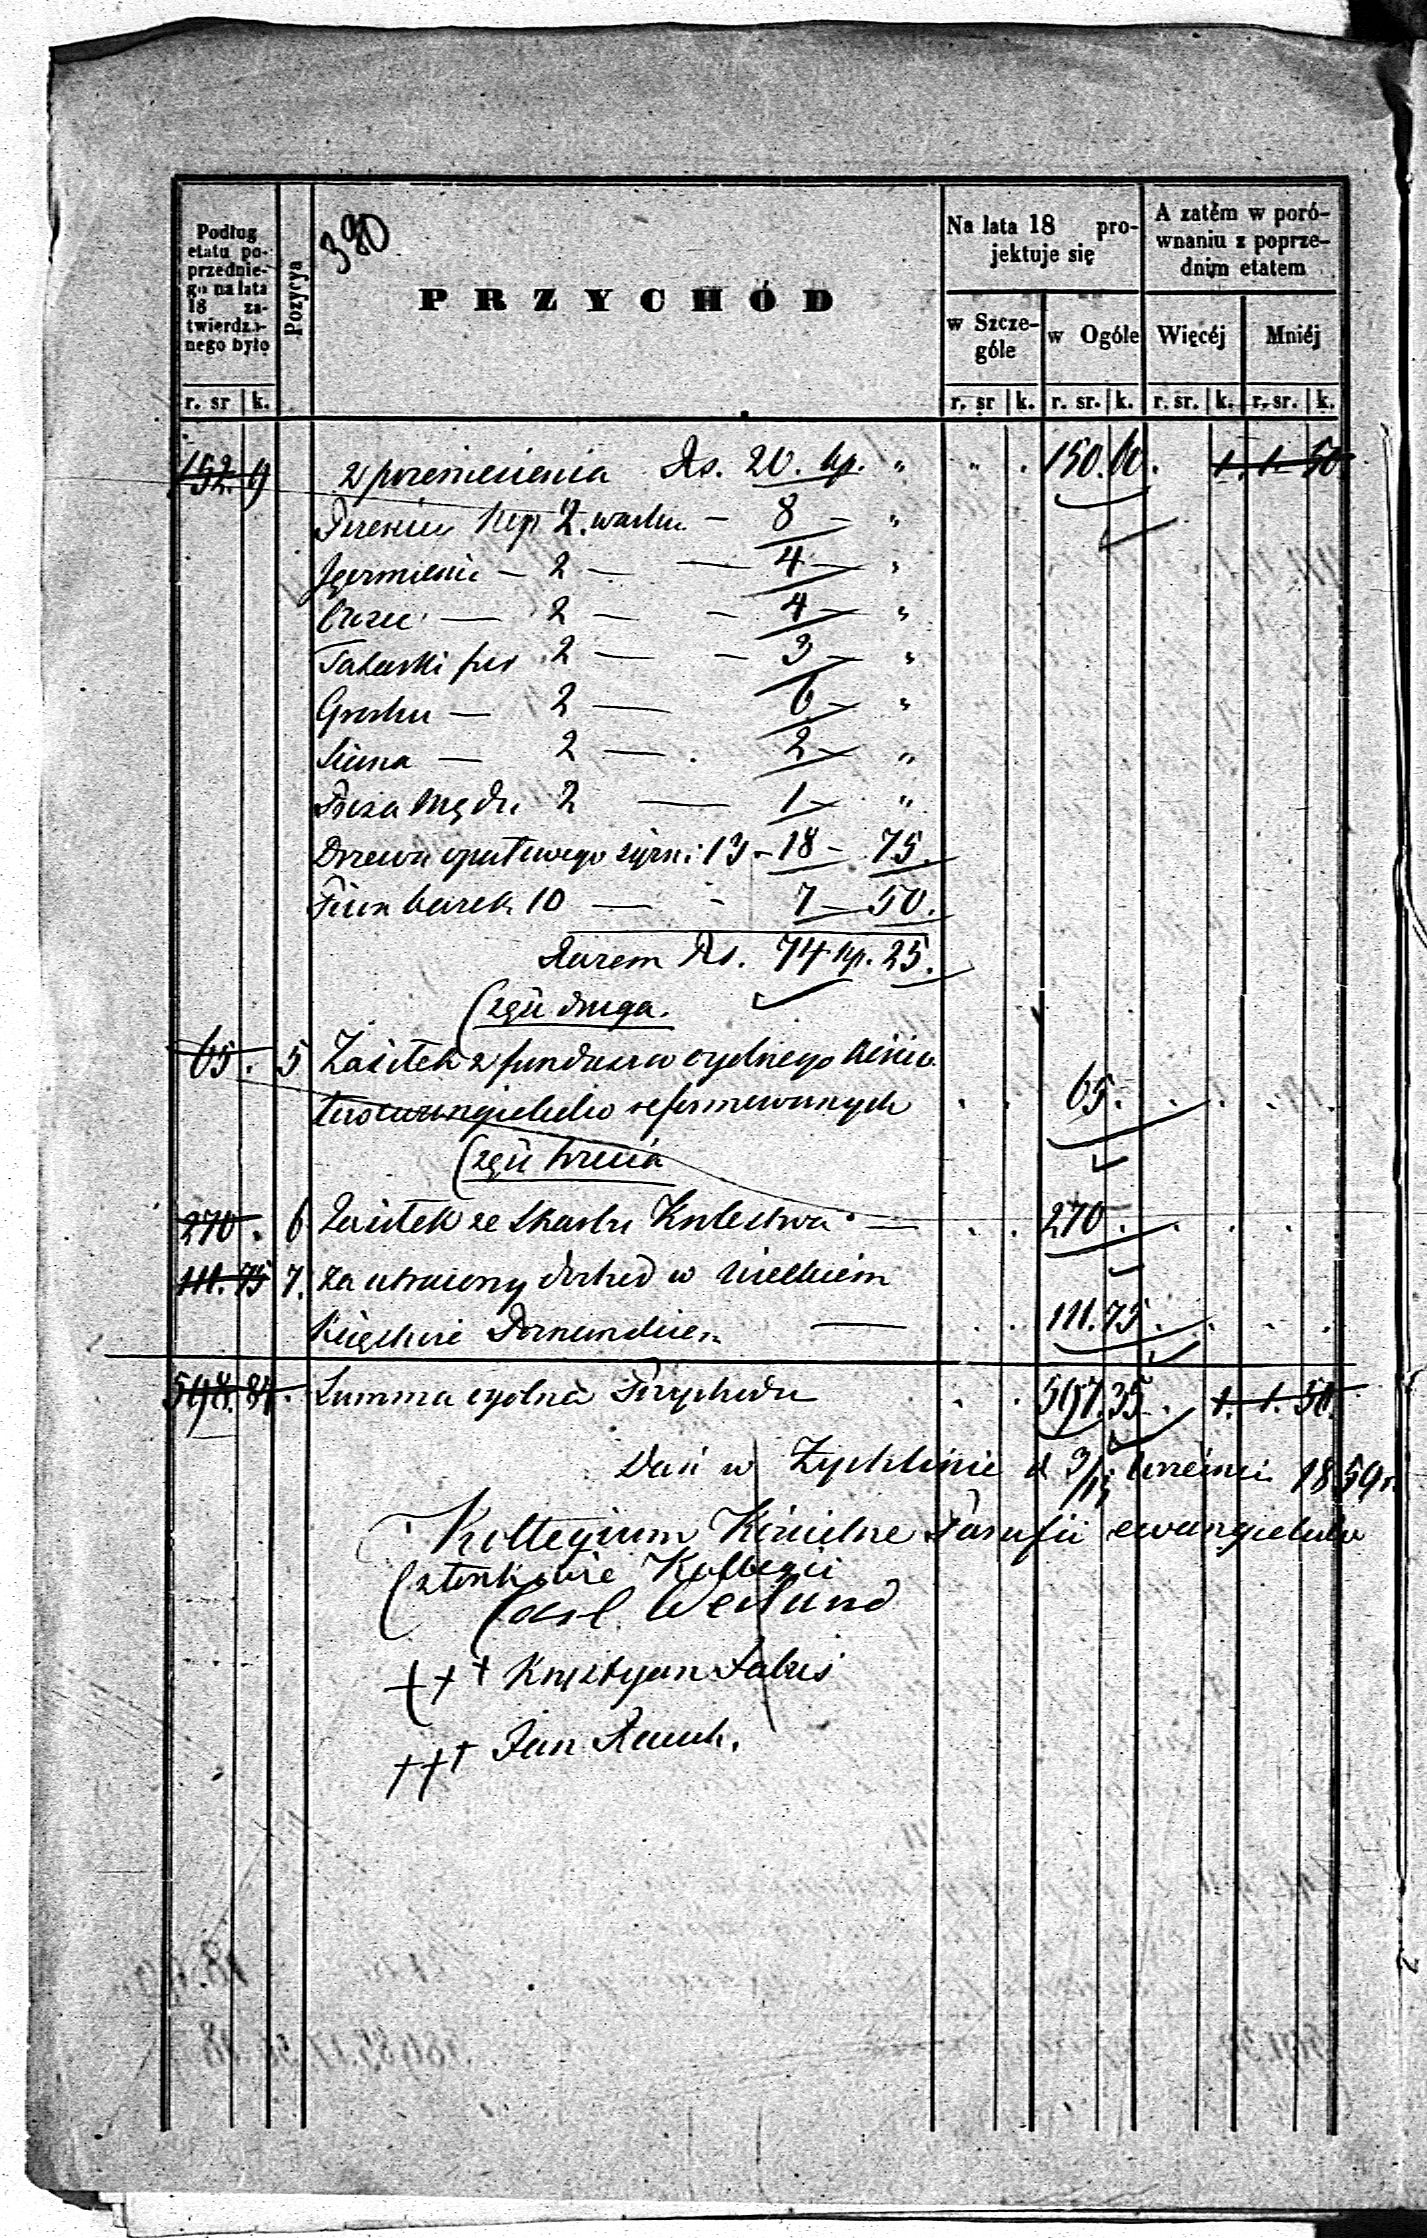 Podług
etatu po-
przednie-
go na lata
18 za-
twierdzo-
nego było
Pozycya
380
PRZYCHÓD
Na lata 18 pro-
jektuje się
A zatém w poró-
wnaniu z poprze-
dnim etatem
w Szcze-
góle
w Ogóle
Więcéj
Mniéj
r. sr k.
r. sr k. r. sr. k. r. sr. k. r. sr. k.
152. 9 z przeniesienia Rs. 20. kp. " " . 150. 60. 1. 1. 50
2. — 8 — "
Jęczmienia — 2 — — 4 — "
— 2 — — 4 — "
Tatarki 2 — — 3 — "
Grochu — 2 — 6 — "
Siana — 2 — 2 — "
2 — 1 — "
Drzewa opałowego sążni 13 — 18 — 75.
10 — 7 — 50.
Razem Rs. 74 kp. 25.
Część druga.
65. 5 Zasiłek z funduszu ogólnego
reformowanych . . 65.
Część trzecia
270. 6 Zasiłek ze Skarbu Królestwa — . . 270. . . .
111. 75 7. Za utracony dochód w Wielkiem
Księstwie Poznańskiem — . . 111. 75. . . .
598. 84. Summa ogólna Przychodu . . 597. 35. 1. 1. 50.
Dań w Żychlinie d 3/15 Wrześni 1859 r.
Kollegium Kościelne Parafii ewangelicko
Członkowie Kollegii
Carl Weilund
+++ Krysztyan
+++ Jan Rauch.